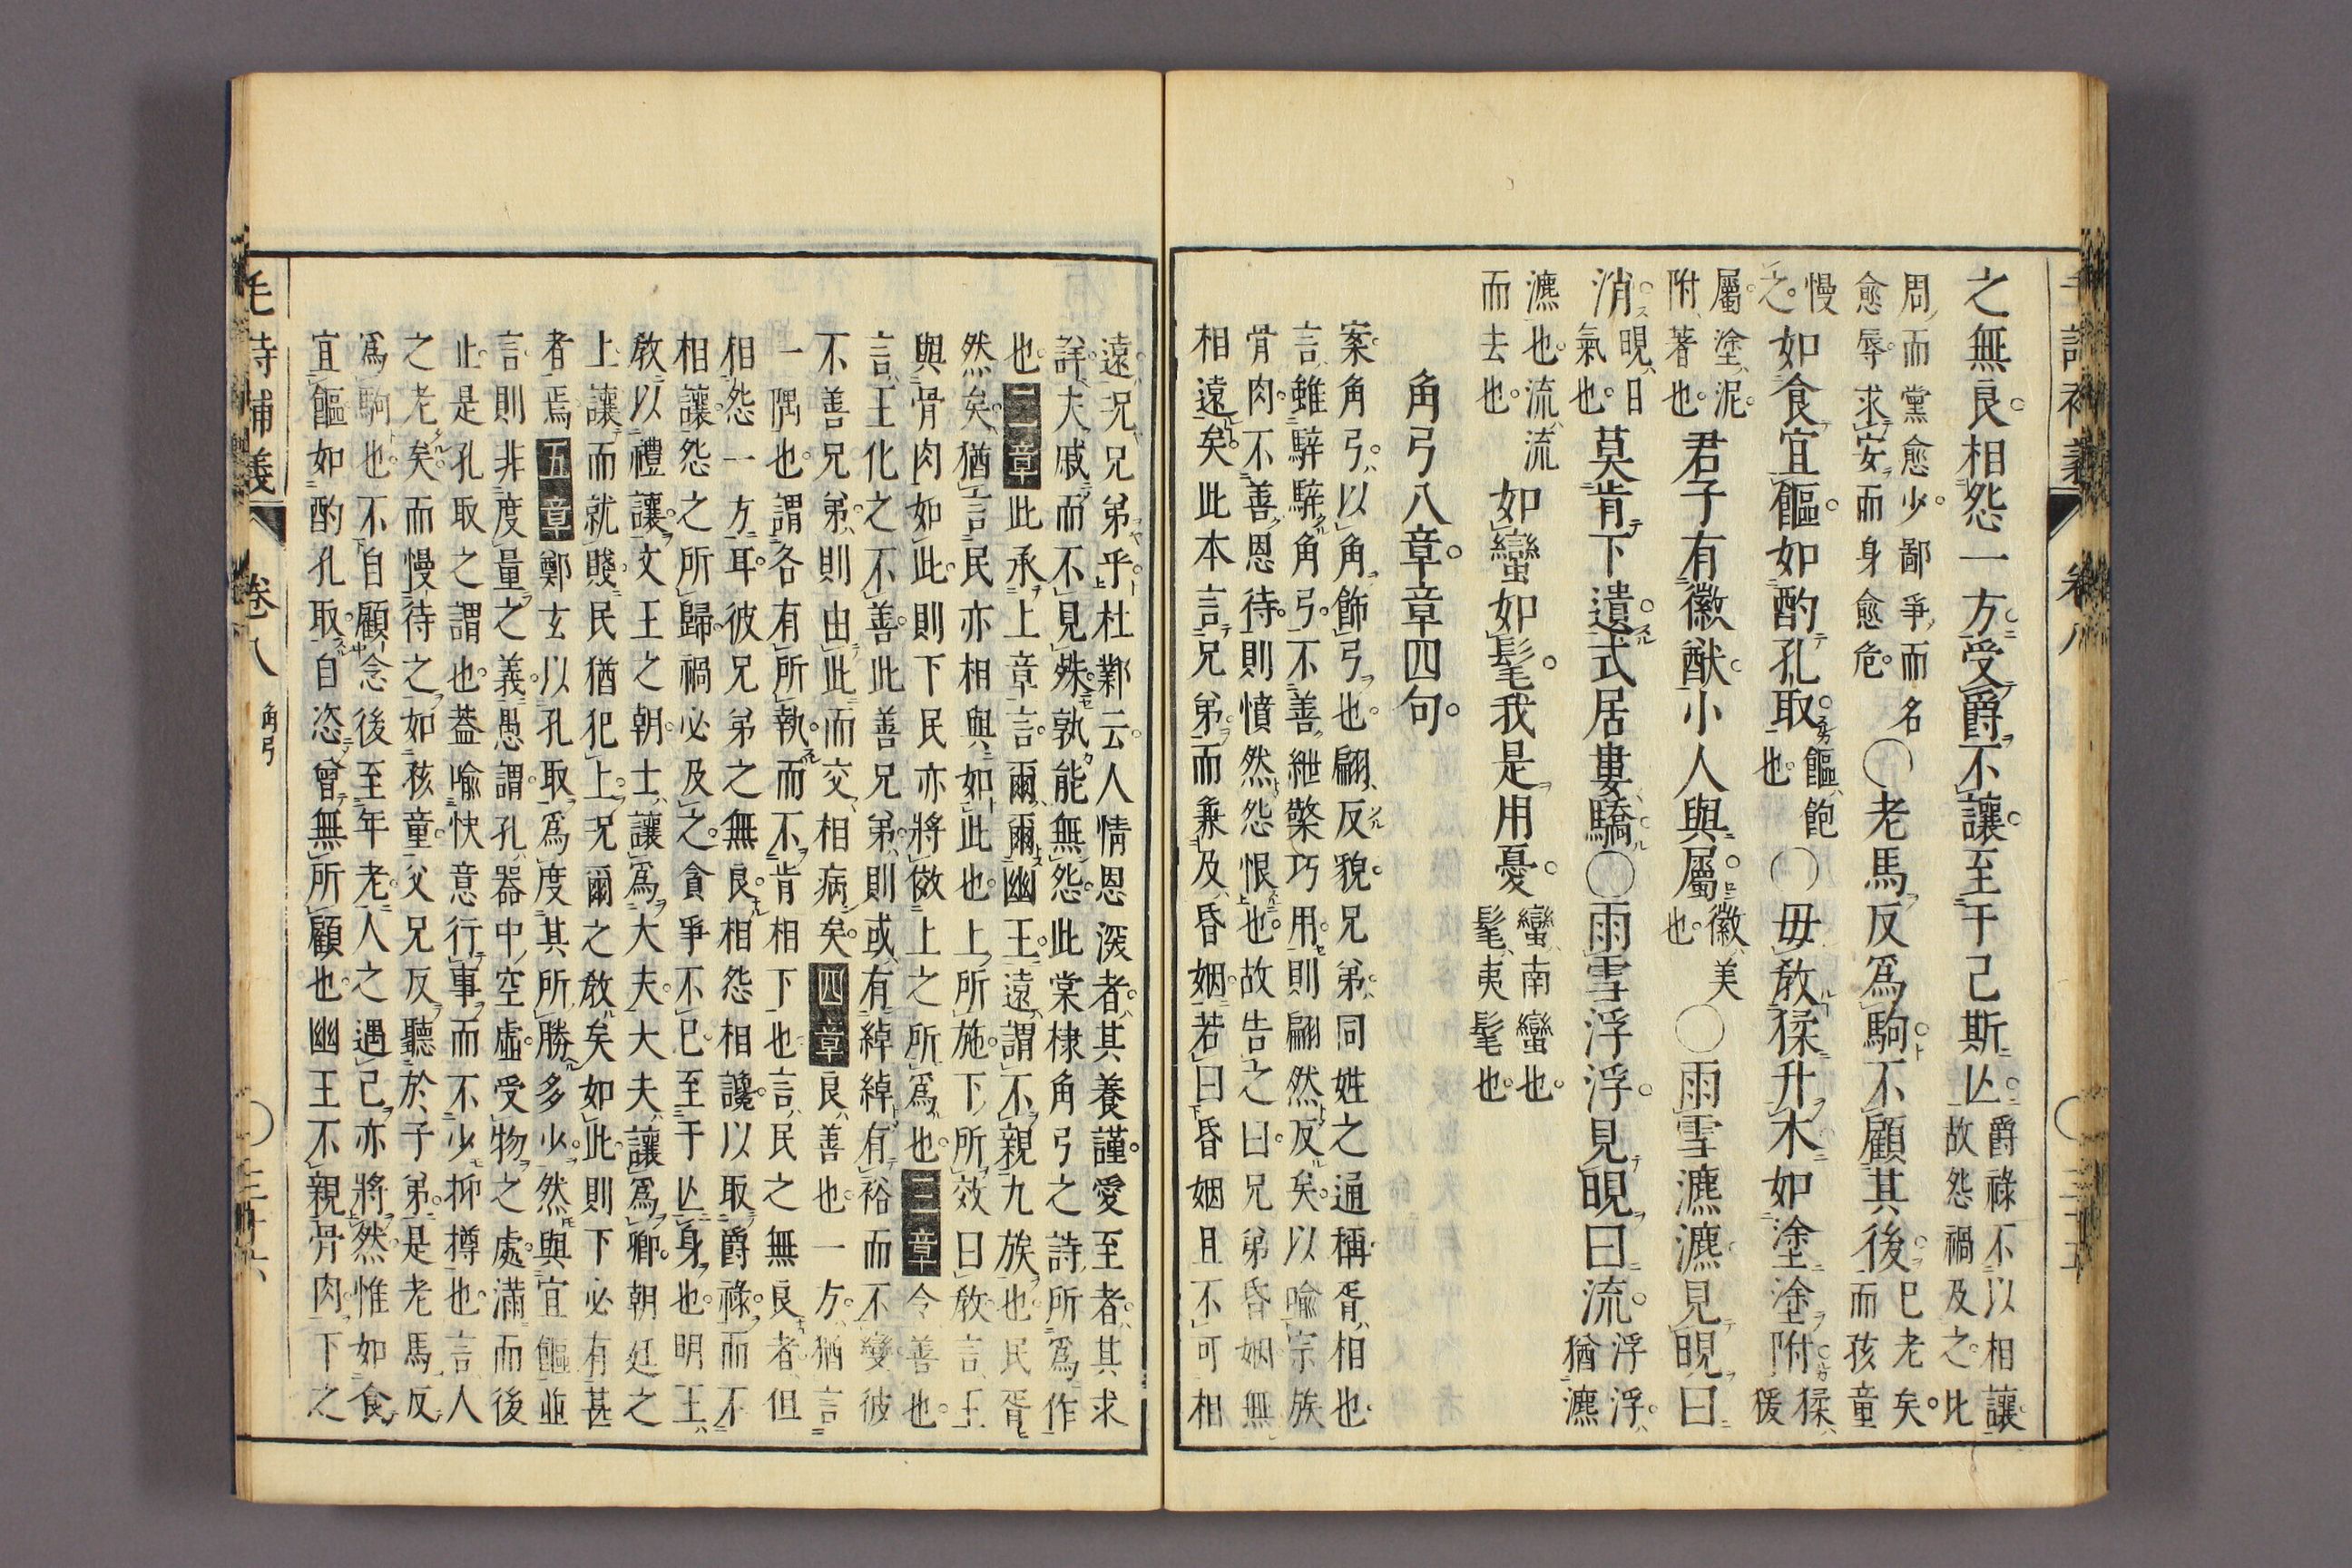 毛詩補義 卷八 三十五
之無良。相怨一方。受爵不讓。至于己斯亾。爵祿不以相讓。故怨禍及之。比
周而黨愈少。鄙爭而名愈辱。求安而身愈危。○老馬反爲駒。不顧其後。巳老矣。而孩童
慢之。如食宜饇。如酌孔取。饇飽也。○毋敎猱升木。如塗塗附。猱猨
屬。塗泥。附著也。君子有徽猷。小人與屬。徽美也。○雨雪瀌瀌。見晛曰
消。晛日氣也。莫肯下遺。式居婁驕。○雨雪浮浮。見晛曰流。浮浮。猶瀌
瀌也。流流而去也。如蠻如髦。我是用憂。蠻南蠻也。髦夷髦也。
角弓八章。章四句。
案。角弓。以角飾弓也。翩反貌。兄弟。同姓之通稱。胥相也
言雖騂騂角弓。不善紲檠巧用。則翩然反矣。以喻宗族
骨肉。不善恩待。則憤然怨恨也。故告之曰。兄弟昏姻無
相遠矣。此本言兄弟。而兼及昏姻。若曰昏姻且不可相
遠。況兄弟乎。杜鄴云。人情恩深者。其養謹。愛至者。其求
詳。夫戚而不見殊。孰能無怨。此棠棣角弓之詩。所爲作
也。二章此承上章言。爾爾幽王。遠謂不親九族也。民胥
然矣。猶言民亦相與如此也。上所施。下所效曰敎。言王
與骨肉如此。則下民亦將傚上之所爲也。三章令善也。
言王化之不善。此善兄弟。則或有綽綽有裕而不變。彼
不善兄弟。則由此而交相病矣。四章良善也。一方。猶言
一隅也。謂各有所執而不肯相下也。言民之無良者。但
相怨一方耳。彼兄弟之無良。相怨相讒。以取爵祿。而不
相讓。怨之所歸。禍必及之。貪爭不已。至于亾身也。明王
敎以禮讓。文王之朝。士讓爲大夫。大夫讓爲卿。朝廷之
上讓而就賤。民猶犯上。況爾之敎矣如此。則下必有甚
者焉。五章鄭玄以孔取爲度其所勝多少。然與宜饇並
言則非度量之義。愚謂。孔器中空虛。受物之處。滿而後
止。是孔取之謂也。蓋喻快意行事。而不少抑樽也。言人
之老矣。而慢待之。如孩童。父兄反聽於子弟。是老馬反
爲駒也。不自顧念後至年老。人之遇己亦將然。惟如食
宜饇。如酌孔取。自恣曾無所顧也。幽王不親骨肉。下之
毛詩補義 卷八 角弓 三十六